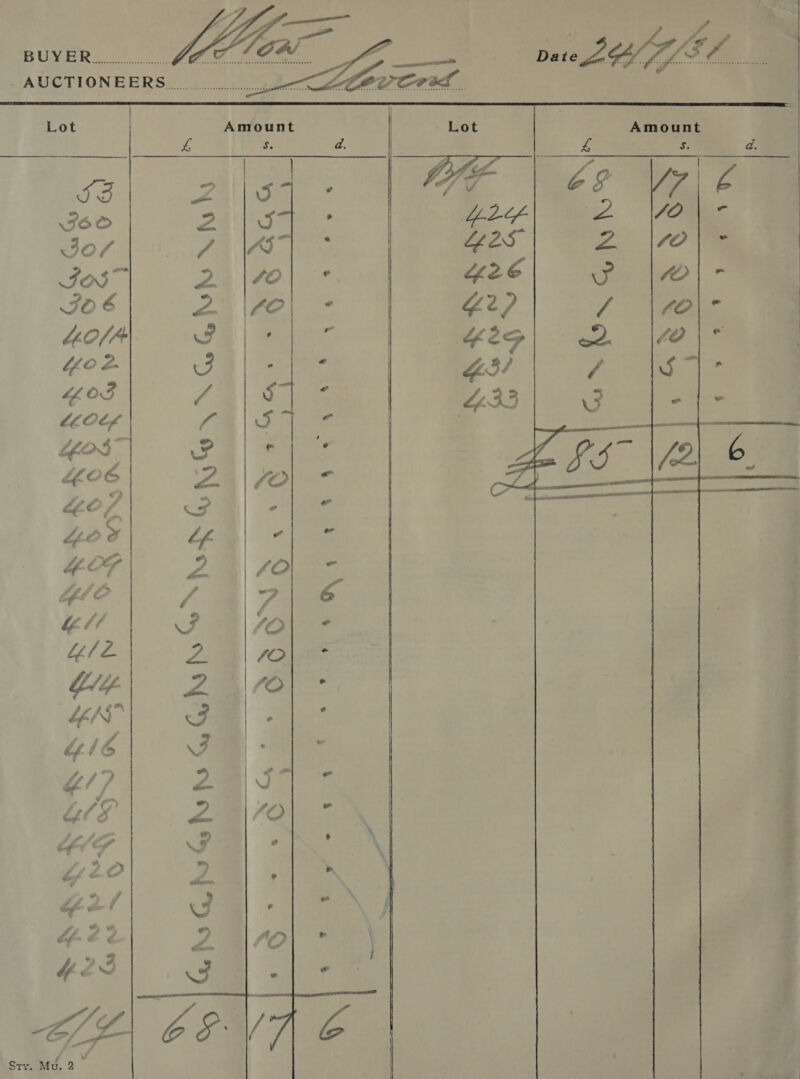 BUYER Date 24/7/31
AUCTIONEERS
Lot Amount
£ s. d.
53 2 5 -
300 2 5 -
301 1 15 -
305 2 10 -
306 2 10 -
401A 3 - -
402 3 - -
403 1 5 -
404 1 5 -
405 3 - -
406 2 10 -
407 3 - -
408 4 - -
409 2 10 -
410 1 7 6
411 3 10 -
412 2 10 -
414 2 10 -
415 3 - -
416 3 - -
417 2 5 -
418 2 10 -
419 3 - -
420 2 - -
421 3 - -
422 2 10 -
423 3 - -
C/F 68 17 6
Lot Amount
£ s. d.
B/F 68 17 6
424 2 10 -
425 2 10 -
426 3 10 -
427 1 10 -
429 2 10 -
431 1 5 -
433 3 - -
£85 12 6
Sty. Mu. 2